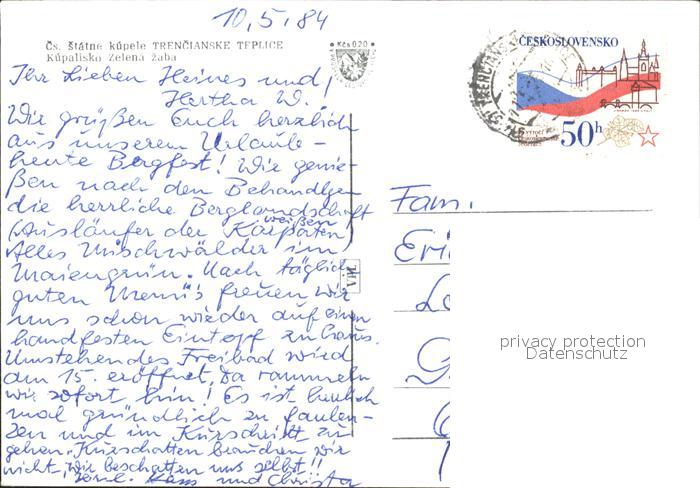 10.5.84
Čs. štátne kúpele TRENČIANSKE TEPLICE
Kúpalisko Zelená žaba
Kčs 0,20
Ihr Lieben Heines und
Hertha W.!
Wir grüßen Euch herzlich
aus unserem Urlaub –
heute Bergfest! Wir genie-
ßen nach den Behandlgen
die herrliche Berglandschaft
(Ausläufer der weißen Karpaten
Alles Mischwälder im
Maiengrün. Nach täglich
guten Menü's freuen wir
uns schon wieder auf einen
handfesten Eintopf zu Haus.
Umstehendes Freibad wird
am 15. eröffnet, da rammeln
wir sofort hin! Es ist herrlich
mal gründlich zu faulen-
zen und im Kurschritt zu
gehen. Kurschatten brauchen wir
nicht, wir beschatten uns selbst!!
und Christa
VPL
ČESKOSLOVENSKO
50h
Fam.
privacy protection
Datenschutz